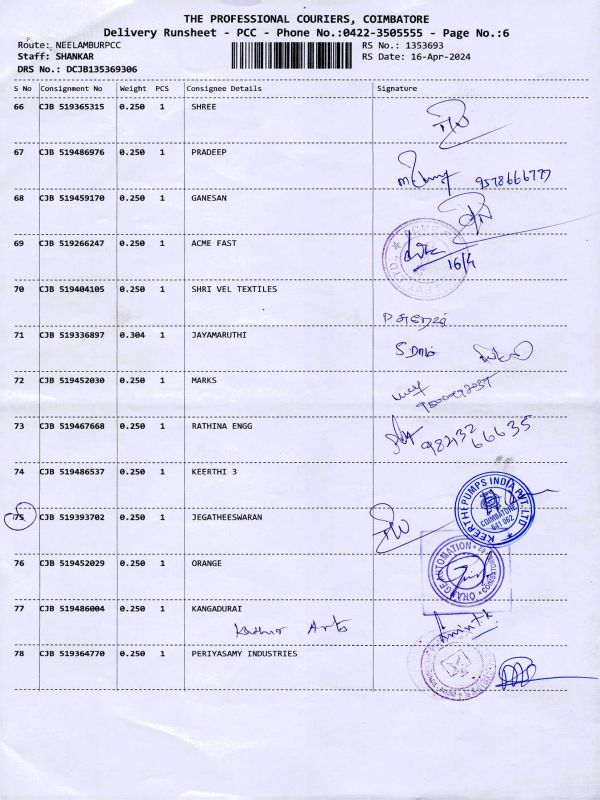 THE PROFESSIONAL COURIERS, COIMBATORE
Delivery Runsheet - PCC - Phone No.:0422-3505555 - Page No.:6
Route: NEELAMBURPCC RS No.: 1353693
Staff: SHANKAR RS Date: 16-Apr-2024
DRS No.: DCJB135369306
S No Consignment No Weight PCS Consignee Details Signature
66 CJB 519365315 0.250 1 SHREE
67 CJB 519486976 0.250 1 PRADEEP
68 CJB 519459170 0.250 1 GANESAN
69 CJB 519266247 0.250 1 ACME FAST
16/4
70 CJB 519404105 0.250 1 SHRI VEL TEXTILES
71 CJB 519336897 0.304 1 JAYAMARUTHI
72 CJB 519452030 0.250 1 MARKS
73 CJB 519467668 0.250 1 RATHINA ENGG
74 CJB 519486537 0.250 1 KEERTHI 3
KEERTHI PUMPS INDIA PVT. LTD
COIMBATORE
641 062
75 CJB 519393702 0.250 1 JEGATHEESWARAN
76 CJB 519452029 0.250 1 ORANGE
ORANGE AUTOMATION
77 CJB 519486004 0.250 1 KANGADURAI
Arts
78 CJB 519364770 0.250 1 PERIYASAMY INDUSTRIES